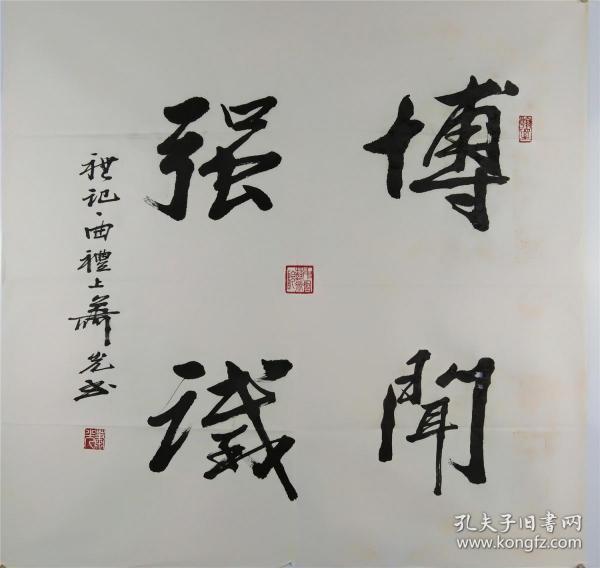 博闻
强识
礼记·曲禮上萧光书
孔夫子旧书网
www.kongfz.com